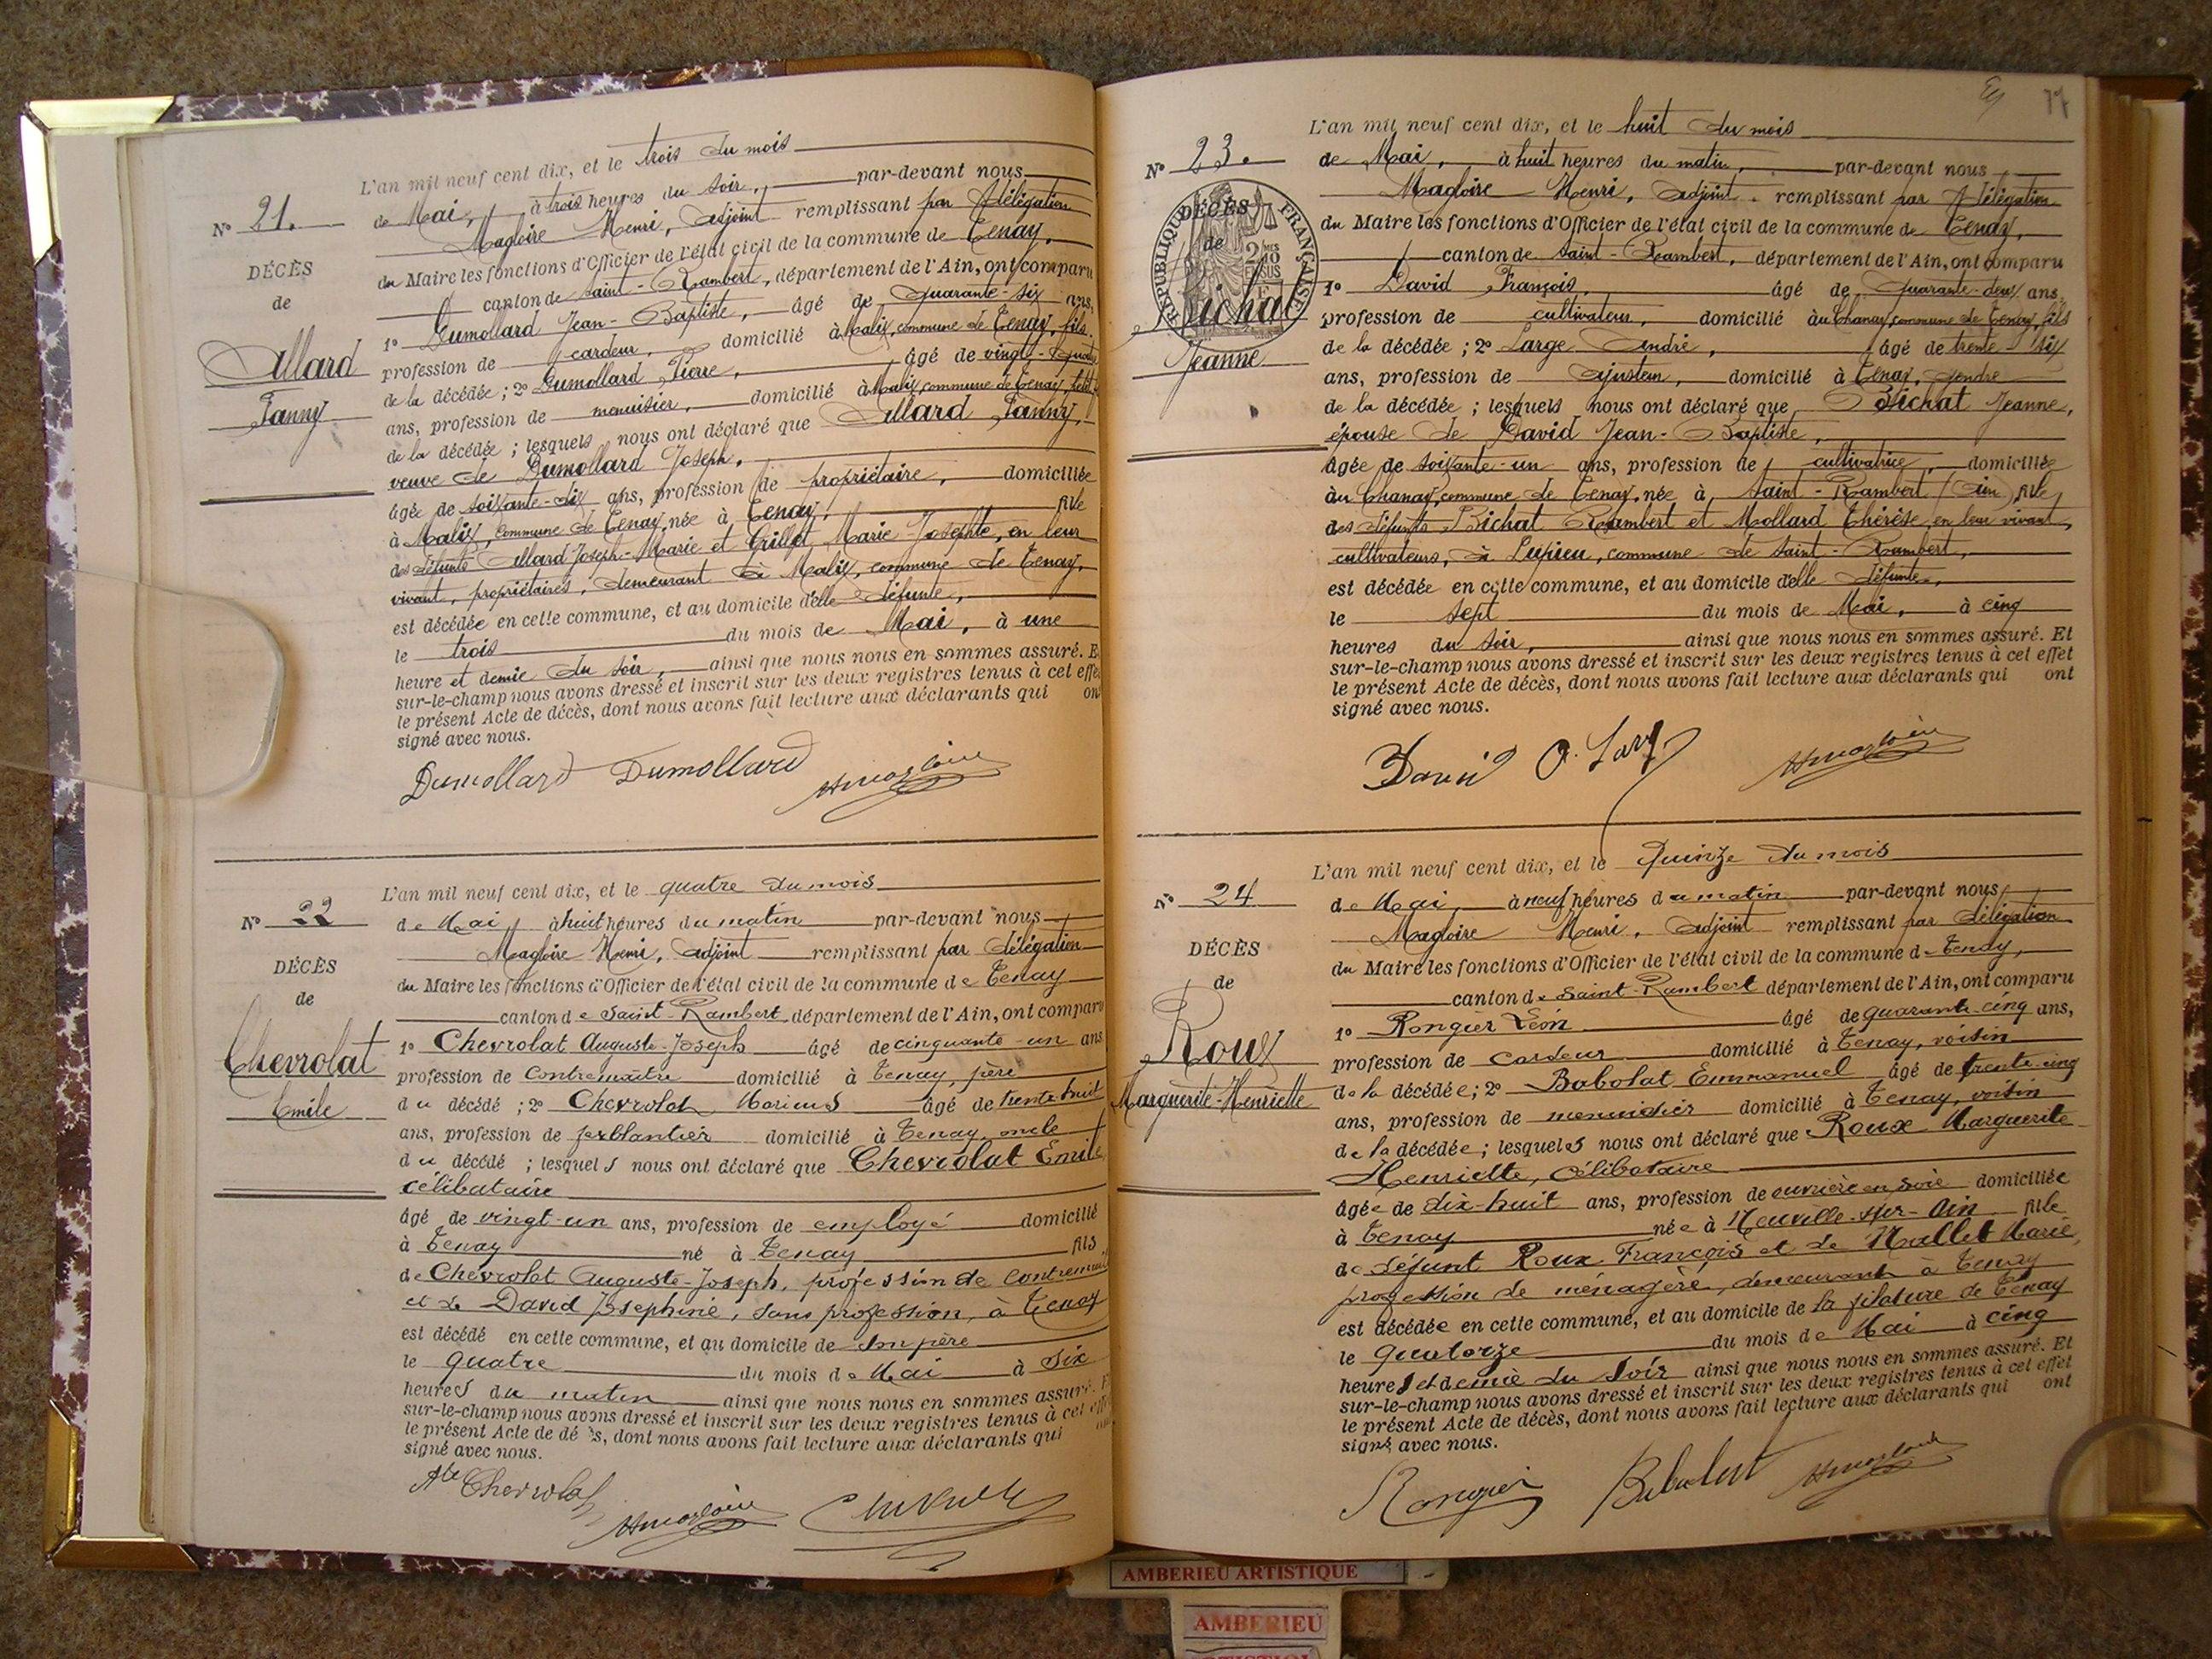 L'an mil neuf cent dix, et le trois du mois
N° 21. de Mai, à trois heures du soir, par-devant nous
Magloire Henri, adjoint remplissant par délégation
DÉCÈS
de
Allard
Fanny
du Maire les fonctions d'Officier de l'état civil de la commune de Tenay,
canton de Saint-Rambert, département de l'Ain, ont comparu
1° Dumollard Jean-Baptiste, âgé de quarante-six ans,
profession de cardeur, domicilié à Malix, commune de Tenay, fils
de la décédée ; 2° Dumollard Pierre, âgé de vingt-quatre
ans, profession de menuisier, domicilié à Malix commune de Tenay, petit-
de la décédée ; lesquels nous ont déclaré que Allard Fanny,
veuve de Dumollard Joseph,
âgée de soixante-dix ans, profession de propriétaire, domiciliée
à Malix, commune de Tenay, née à Tenay, fille
des défunts Allard Joseph-Marie et Grillet Marie-Josephte, en leur
vivant, propriétaires, demeurant à Malix, commune de Tenay,
est décédée en cette commune, et au domicile d'elle défunte,
le trois du mois de Mai, à une
heure et demie du soir, ainsi que nous nous en sommes assuré. E
sur-le-champ nous avons dressé et inscrit sur les deux registres tenus à cet effe
le présent Acte de décès, dont nous avons fait lecture aux déclarants qui on
signé avec nous.
Dumollard Dumollard HMagloire
L'an mil neuf cent dix, et le quatre du mois
N° 22 de Mai à huit heures du matin par-devant nous
Magloire Henri, adjoint remplissant par délégation
DÉCÈS
de
Chevrolat
Emile
du Maire les fonctions d'Officier de l'état civil de la commune de Tenay
canton de Saint-Rambert département de l'Ain, ont comparu
1° Chevrolat Auguste-Joseph âgé de cinquante-un ans
profession de contremaître domicilié à Tenay, père
du décédé ; 2° Chevrolat Marius âgé de trente-huit
ans, profession de ferblantier domicilié à Tenay oncle
du décédé ; lesquels nous ont déclaré que Chevrolat Emile
célibataire
âgé de vingt-un ans, profession de employé domicilié
à Tenay né à Tenay fils
de Chevrolat Auguste-Joseph, profession de contremaî
et de David Josephine, sans profession, à Tenay
est décédé en cette commune, et au domicile de son père
le quatre du mois de Mai à six
heures du matin ainsi que nous nous en sommes assuré. E
sur-le-champ nous avons dressé et inscrit sur les deux registres tenus à cet effe
le présent Acte de dé s, dont nous avons fait lecture aux déclarants qui on
signé avec nous.
Ate Chevrolat HMagloire
77
L'an mil neuf cent dix, et le huit du mois
N° 23. de Mai, à huit heures du matin, par-devant nous
Magloire Henri, adjoint remplissant par délégation
DÉCÈS
de
RÉPUBLIQUE FRANÇAISE
Bichat
Jeanne
du Maire les fonctions d'Officier de l'état civil de la commune de Tenay,
canton de Saint-Rambert, département de l'Ain, ont comparu
1° David François, âgé de quarante-deux ans,
profession de cultivateur, domicilié au Chanay, commune de Tenay, fils
de la décédée ; 2° Large André, âgé de trente-six
ans, profession de ajusteur, domicilié à Tenay, gendre
de la décédée ; lesquels nous ont déclaré que Bichat Jeanne,
épouse de David Jean-Baptiste,
âgée de soixante-un ans, profession de cultivatrice, domiciliée
au Chanay, commune de Tenay, née à Saint-Rambert (Ain), fille
des défunts Bichat Rambert et Mollard Thérèse, en leur vivant,
cultivateurs, à Lupieu, commune de Saint-Rambert,
est décédée en cette commune, et au domicile d'elle défunte,
le sept du mois de Mai, à cinq
heures du soir, ainsi que nous nous en sommes assuré. Et
sur-le-champ nous avons dressé et inscrit sur les deux registres tenus à cet effet
le présent Acte de décès, dont nous avons fait lecture aux déclarants qui ont
signé avec nous.
David A. Large HMagloire
L'an mil neuf cent dix, et le quinze du mois
N° 24 de Mai, à neuf heures du matin par-devant nous
Magloire Henri, adjoint remplissant par délégation
DÉCÈS
de
Roux
Marguerite-Henriette
du Maire les fonctions d'Officier de l'état civil de la commune de Tenay,
canton de Saint-Rambert département de l'Ain, ont comparu
1° Rongier Léon âgé de quarante-cinq ans,
profession de cardeur domicilié à Tenay, voisin
de la décédée ; 2° Babolat Emmanuel âgé de trente-cinq
ans, profession de menuisier domicilié à Tenay, voisin
de la décédée ; lesquels nous ont déclaré que Roux Marguerite
Henriette, célibataire
âgée de dix-huit ans, profession de ouvrière en soie domiciliée
à Tenay née à Neuville-sur-Ain fille
de défunt Roux François et de Mallet Marie,
profession de ménagère, demeurant à Tenay
est décédée en cette commune, et au domicile de la filature de Tenay
le quatorze du mois de Mai à cinq
heures et demie du soir ainsi que nous nous en sommes assuré. Et
sur-le-champ nous avons dressé et inscrit sur les deux registres tenus à cet effet
le présent Acte de décès, dont nous avons fait lecture aux déclarants qui ont
signé avec nous.
Rongier Babolat HMagloire
AMBERIEU ARTISTIQUE
AMBERIEU